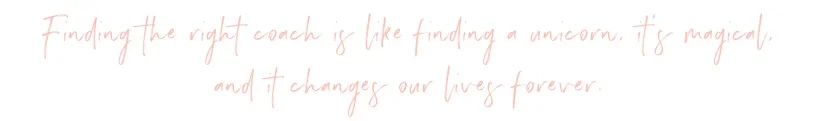 Finding the right coach is like finding a unicorn. it's magical.
and it changes our lives forever.